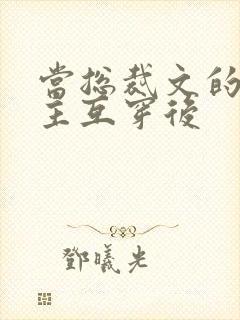 當總裁文的
主互穿後
鄧曦光